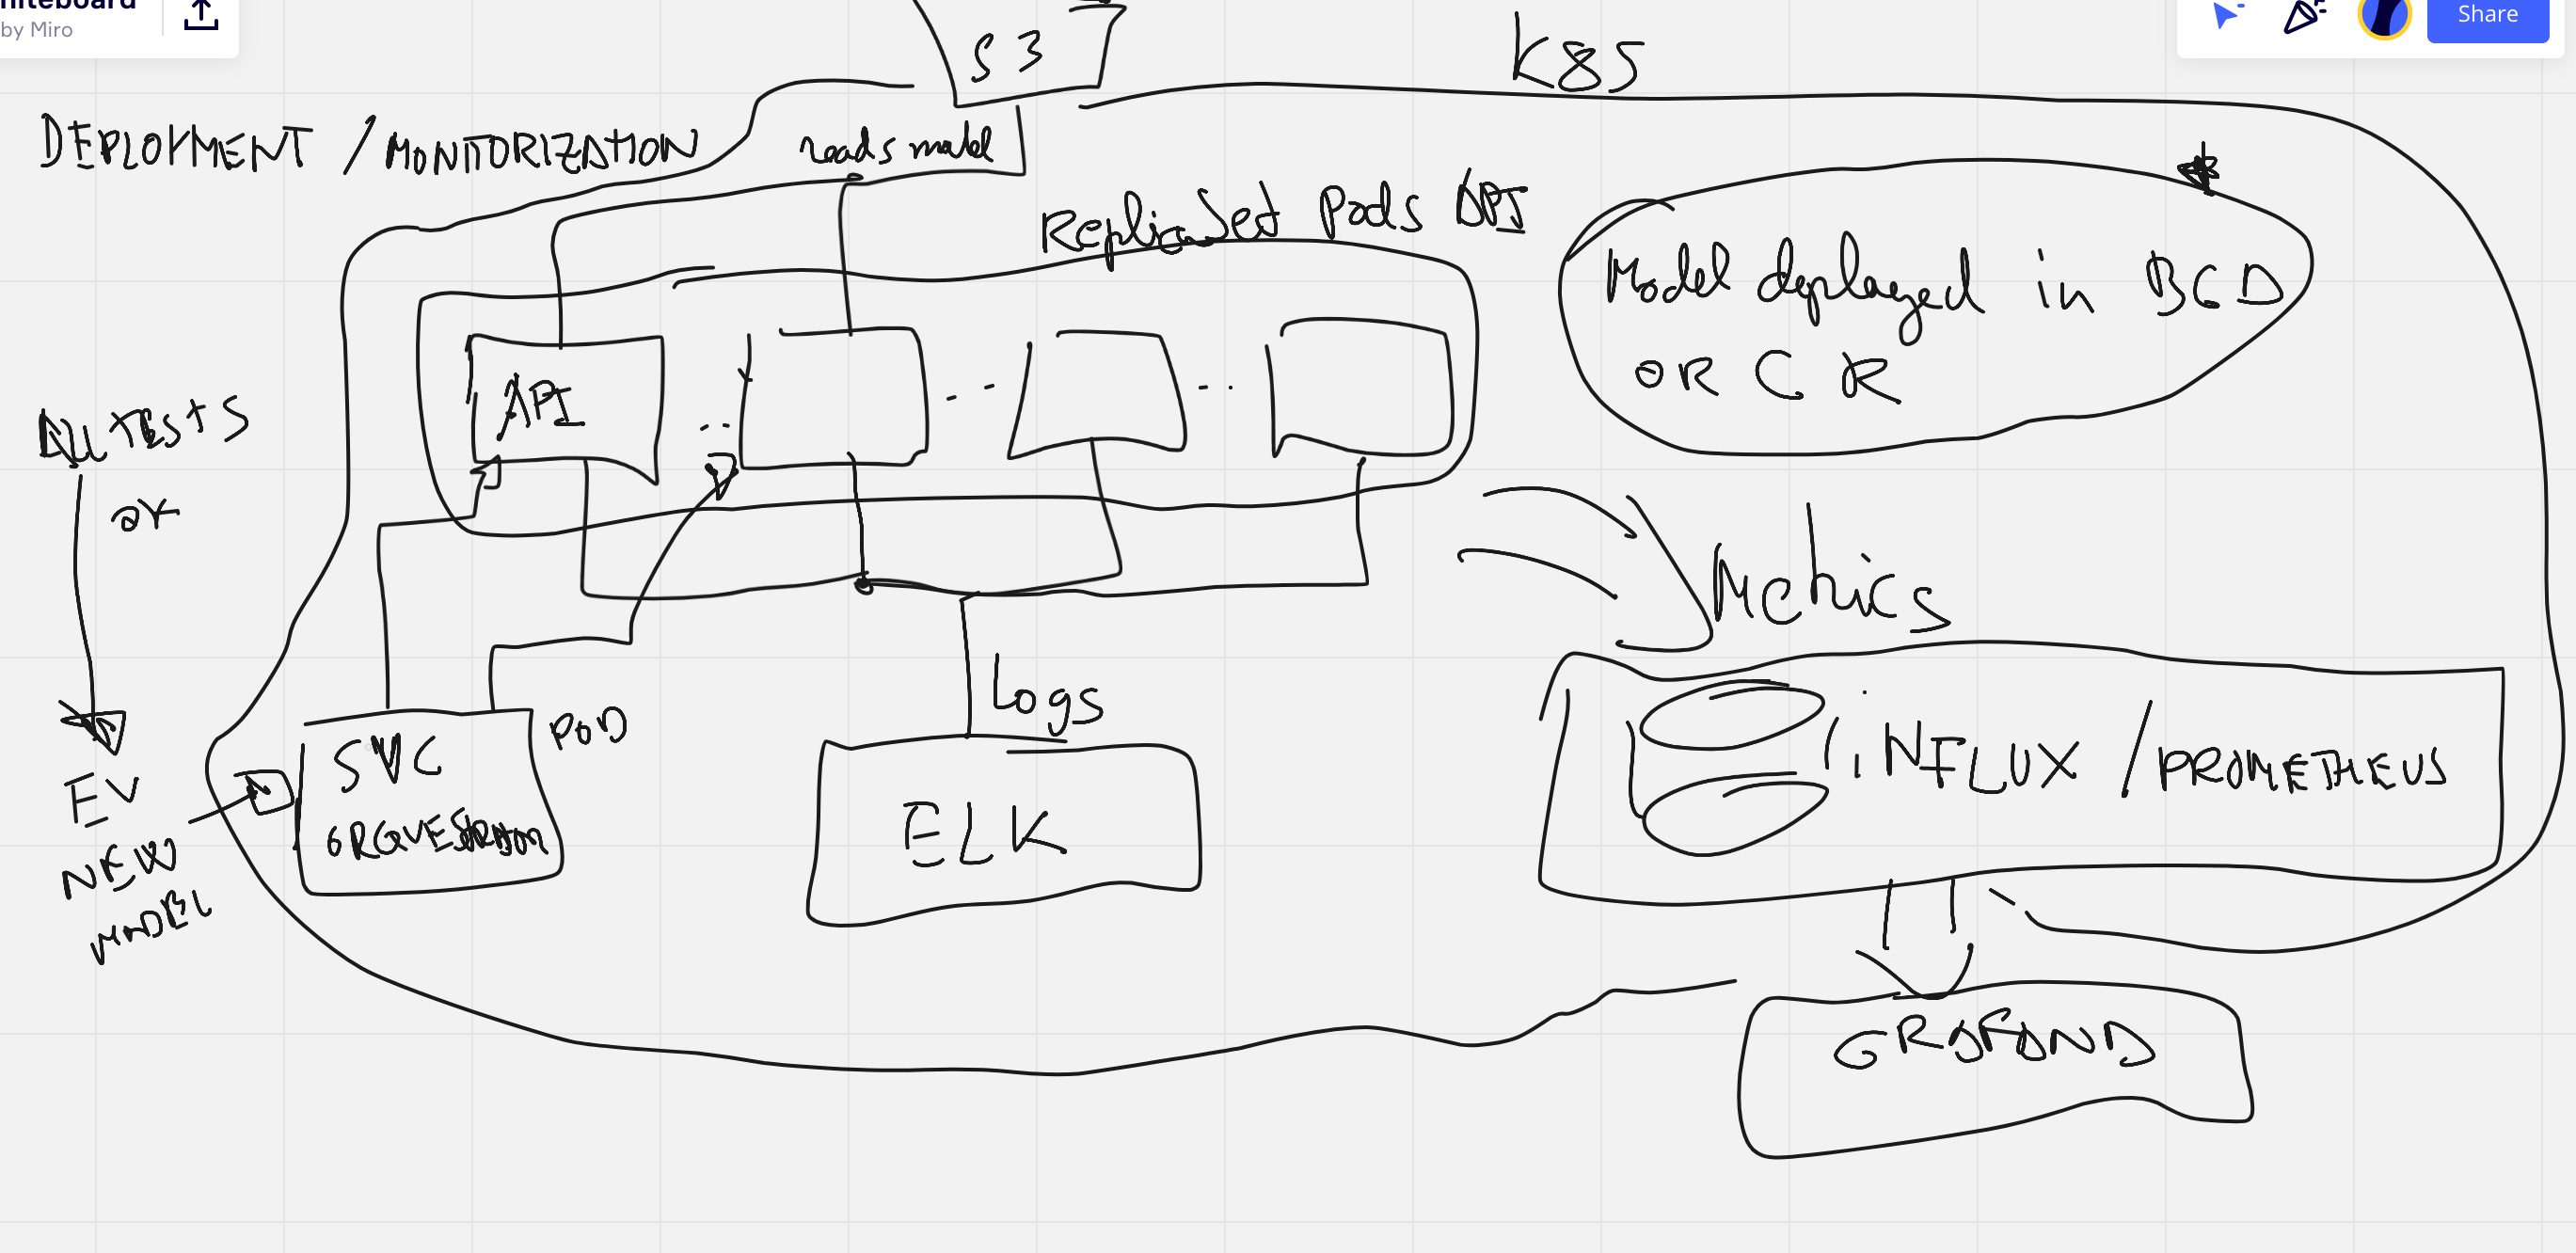 niteboard
by Miro
Share
S3
K8S
DEPLOYMENT / MONITORIZATION
reads model
ReplicaSet Pods API
Model deployed in BCD
OR CR
API
TESTS
or
Metrics
Logs
POD
SVC
ORQUESTRATION
EV
NEW
MODEL
ELK
INFLUX / PROMETHEUS
GRAFANA